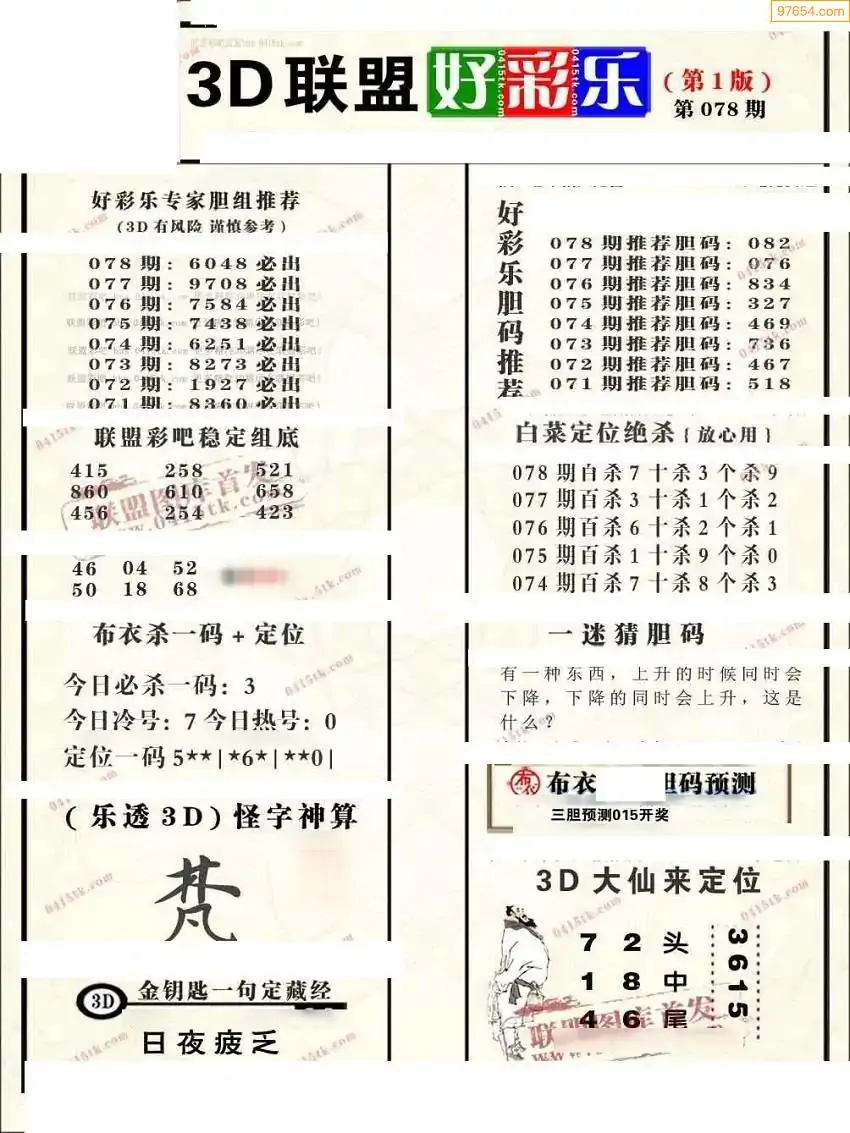 97654.com
3D联盟好彩乐(第1版)
第078期
好彩乐专家胆组推荐
(3D有风险 谨慎参考)
078期：6048必出
077期：9708必出
076期：7584必出
075期：7438必出
074期：6251必出
073期：8273必出
072期：1927必出
071期：8360必出
联盟彩吧稳定组底
415 258 521
860 610 658
456 254 423
46 04 52
50 18 68
布衣杀一码+定位
今日必杀一码：3
今日冷号：7 今日热号：0
定位一码5**|*6*|**0|
(乐透3D)怪字神算
梵
3D 金钥匙一句定藏经
日夜疲乏
好彩乐胆码推荐
078期推荐胆码：082
077期推荐胆码：076
076期推荐胆码：834
075期推荐胆码：327
074期推荐胆码：469
073期推荐胆码：736
072期推荐胆码：467
071期推荐胆码：518
白菜定位绝杀{放心用}
078期百杀7十杀3个杀9
077期百杀3十杀1个杀2
076期百杀6十杀2个杀1
075期百杀1十杀9个杀0
074期百杀7十杀8个杀3
一迷猜胆码
有一种东西，上升的时候同时会
下降，下降的同时会上升，这是
什么？
布衣 胆码预测
三胆预测015开奖
3D大仙来定位
7 2 头
1 8 中
4 6 尾
3615
联盟图库首发
www.0415tk.com
联盟图库首发
0415tk.com